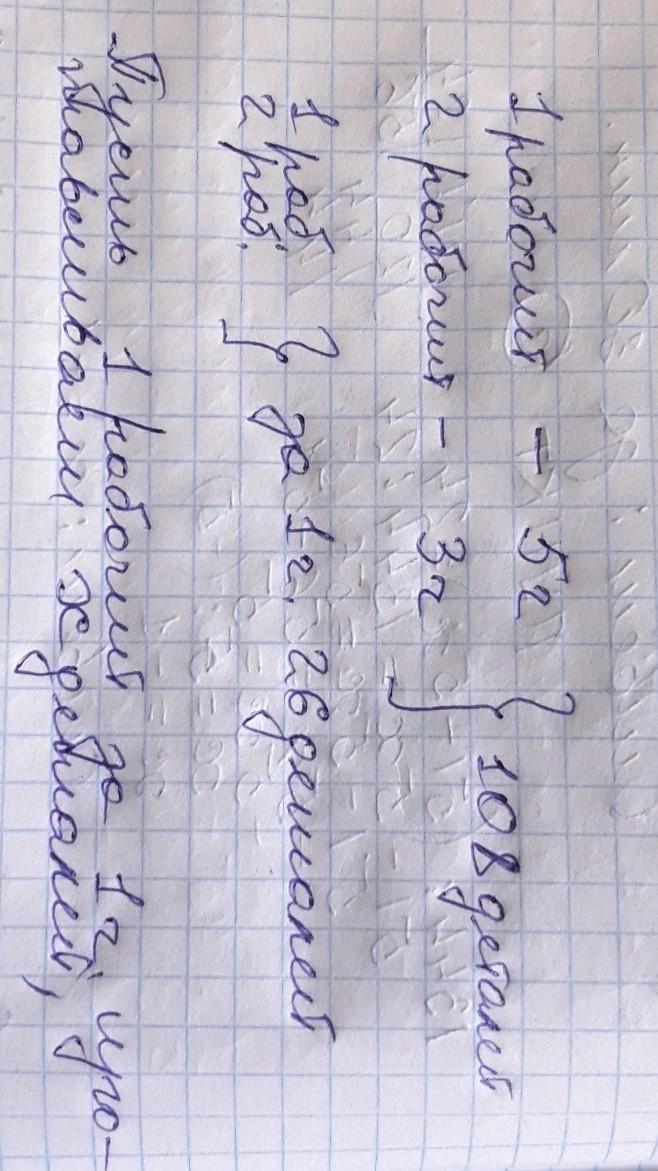 1 рабочий - 5ч
2 рабочий - 3ч } 108 деталей
1 раб
2 раб. } за 1ч. 26 деталей
Пусть 1 рабочий за 1ч. изго-
тавливает x деталей,